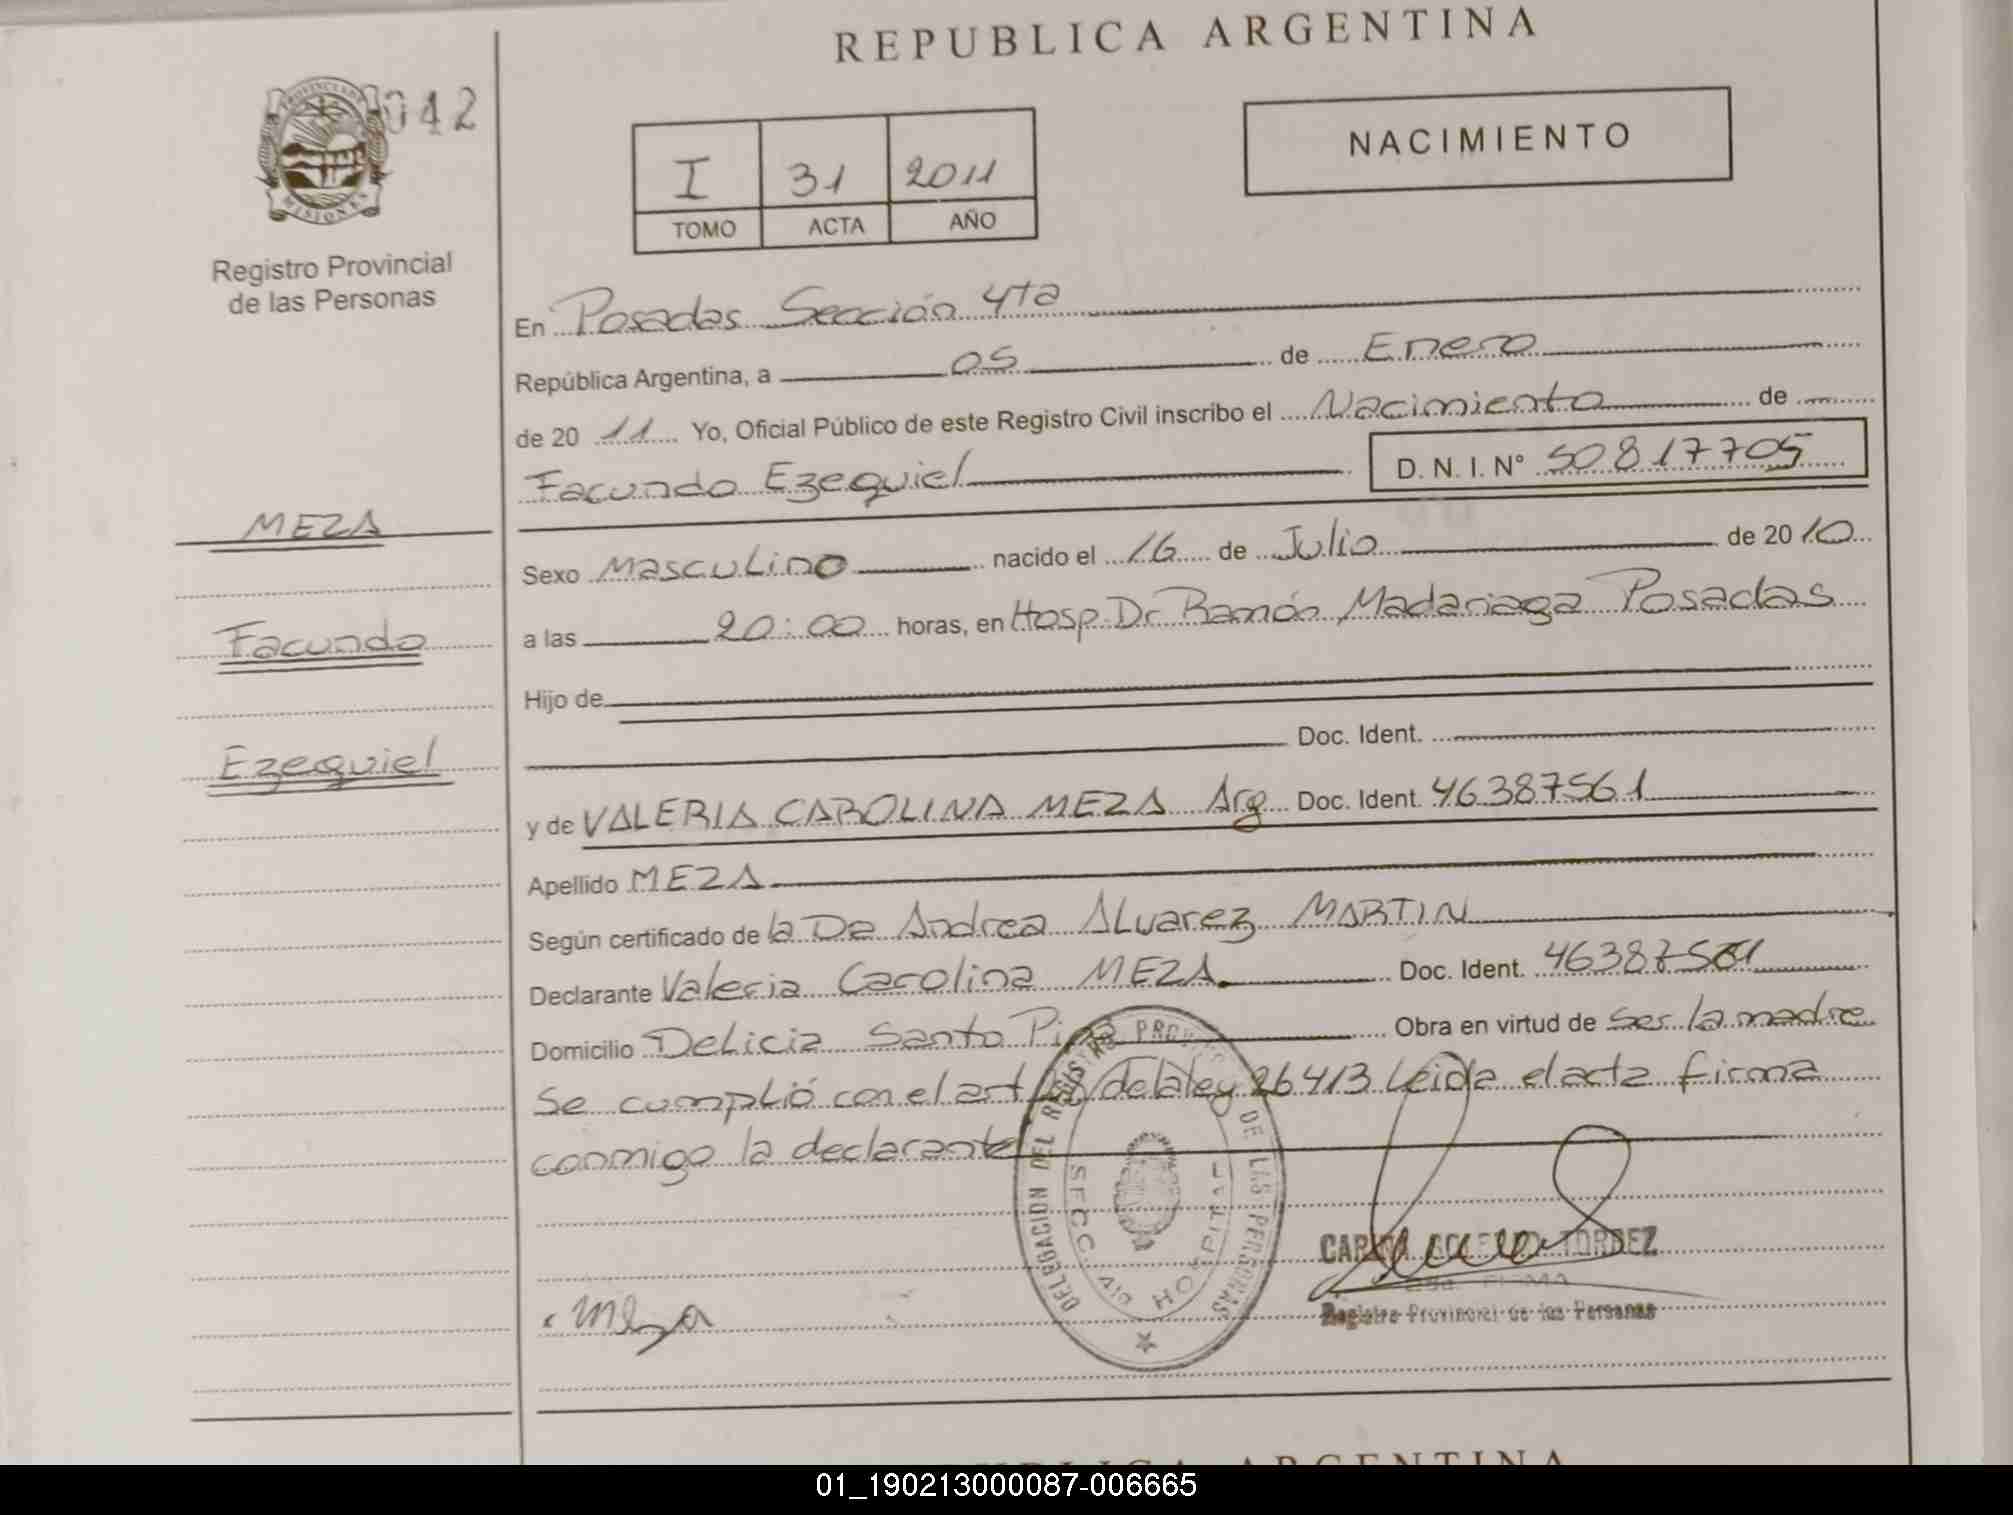 REPUBLICA ARGENTINA
042
PROVINCIA DE
MISIONES
Registro Provincial
de las Personas
I 31 2011
TOMO ACTA AÑO
NACIMIENTO
En Posadas Sección 4ta
República Argentina, a 05 de Enero
de 20 11 Yo, Oficial Público de este Registro Civil inscribo el Nacimiento de
Facundo Ezequiel D. N. I. N° 50817705
MEZA
Facundo
Ezequiel
Sexo Masculino nacido el 16 de Julio de 2010
a las 20:00 horas, en Hosp. Dr Ramón Madariaga Posadas
Hijo de
Doc. Ident.
y de VALERIA CAROLINA MEZA Arg Doc. Ident. 46387561
Apellido MEZA
Según certificado de la Da Andrea ALvarez MARTIN
Declarante Valeria Carolina MEZA Doc. Ident. 46387561
Domicilio Delicia Santo Obra en virtud de ser la madre
Se cumplió con el art de la ley 26413 Leida el acta firma
conmigo la declarante
DELEGACION DEL REGISTRO PROV DE LAS PERSONAS
SECC. HOSPITAL
Meza
TORREZ
FIRMA
Registro Provincial de las Personas
01_190213000087-006665